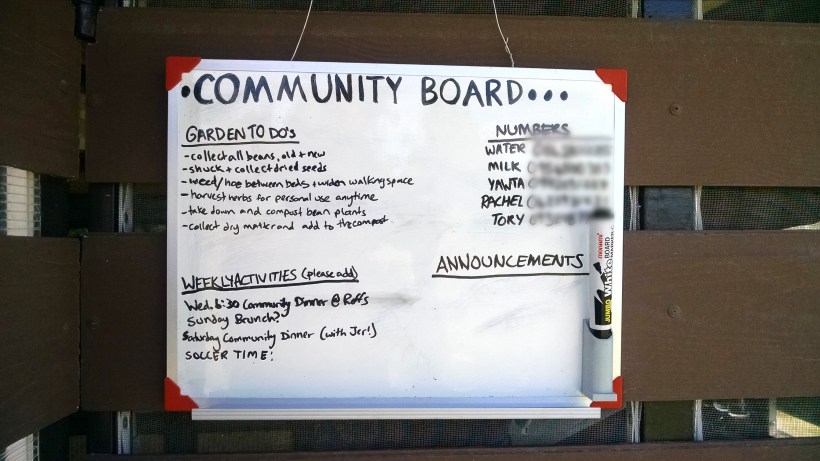 •COMMUNITY BOARD•••
GARDEN TO DO's
- collect all beans, old + new
- shuck + collect dried seeds
- weed/hoe between beds + widen walking space
- harvest herbs for personal use anytime
- take down and compost bean plants
- collect dry matter and add to the compost
WEEKLY ACTIVITIES (please add)
Wed. 6:30 Community Dinner @ Roff's
Sunday Brunch?
Saturday Community Dinner (with Jer!)
SOCCER TIME:
NUMBERS
WATER
MILK
YAWTA
RACHEL
TORY
ANNOUNCEMENTS
JUMBO
WHITE BOARD